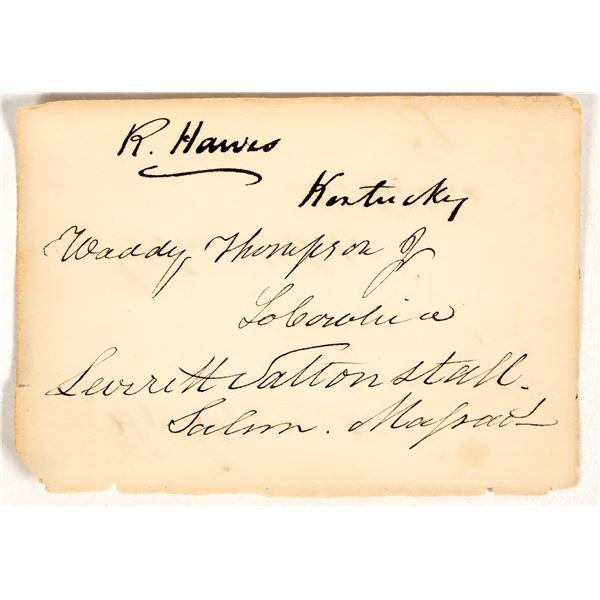 R. Hawes
Kentucky
Waddy Thompson Jr
So Carolina
Leverett Saltonstall.
Salem. Massachts